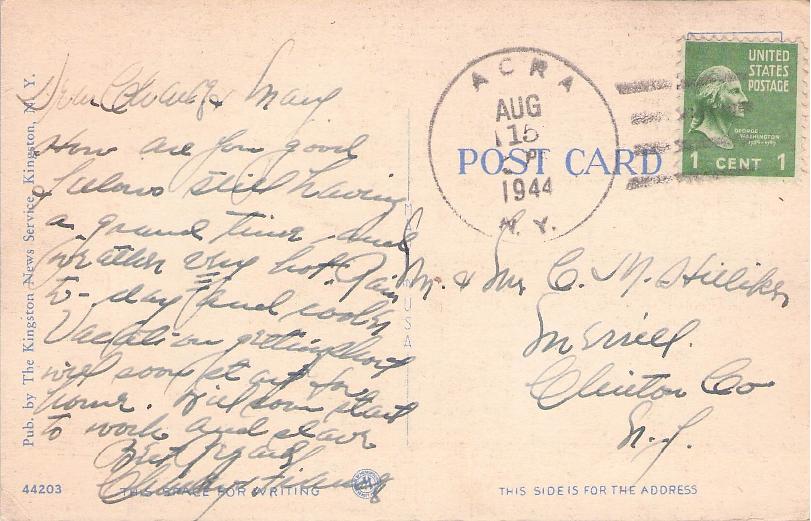 Dear & Mary
How are you good
felows still having
a grand time and
weather very hot. Rain
to-day and cooler
Vacation getting short
will soon set out for
home. Will soon start
to work and slave
Best regards
Pub. by The Kingston News Service, Kingston, N. Y.
44203
THIS SPACE FOR WRITING
MADE IN U.S.A.
ACRA
AUG
15
PM
1944
N. Y.
POST CARD
UNITED
STATES
POSTAGE
GEORGE
WASHINGTON
1789-1797
1 CENT 1
Mr. & Mrs C. M. Hilliker
Merrill.
Clinton Co
N.Y.
THIS SIDE IS FOR THE ADDRESS